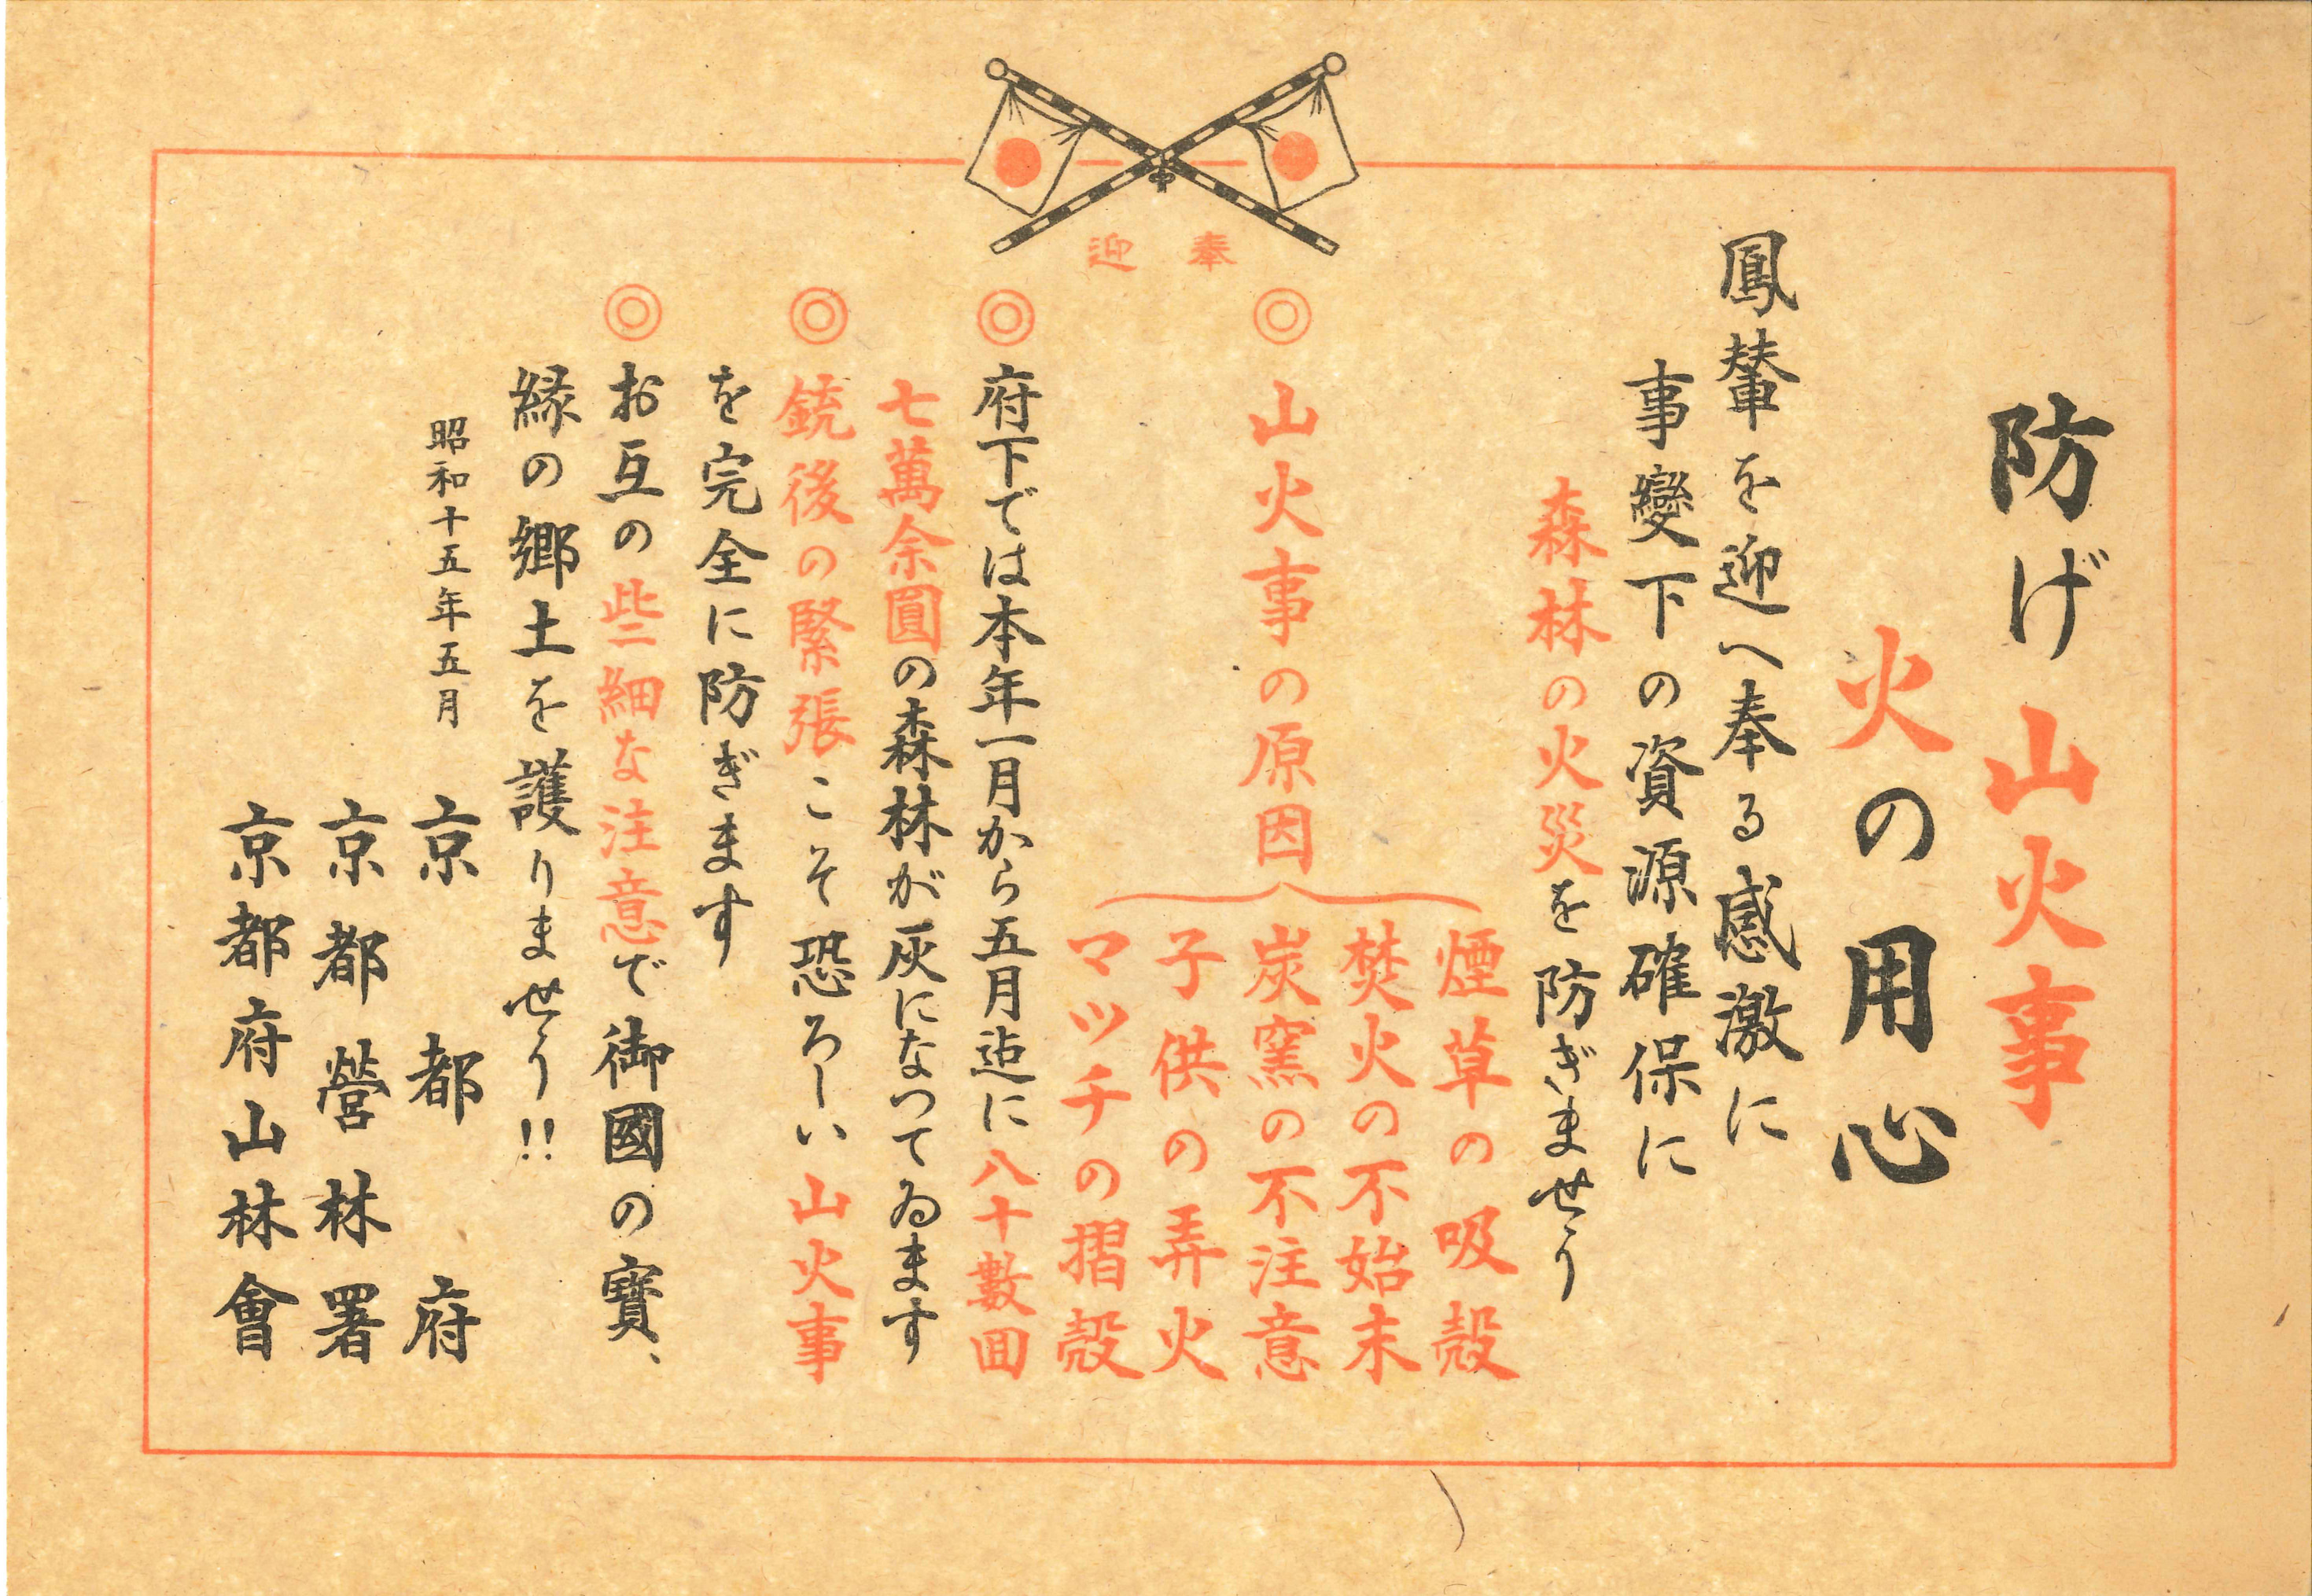 奉迎
防げ山火事
火の用心
鳳輦を迎へ奉る感激に
事變下の資源確保に
森林の火災を防ぎませう
◎山火事の原因
煙草の吸殻
焚火の不始末
炭窯の不注意
子供の弄火
マッチの摺殻
◎府下では本年一月から五月迄に八十數囬
七萬余圓の森林が灰になつてゐます
◎銃後の緊張こそ恐ろしい山火事
を完全に防ぎます
◎お互の些細な注意で御國の寳、
緑の郷土を護りませう!!
昭和十五年五月
京都府
京都營林署
京都府山林會